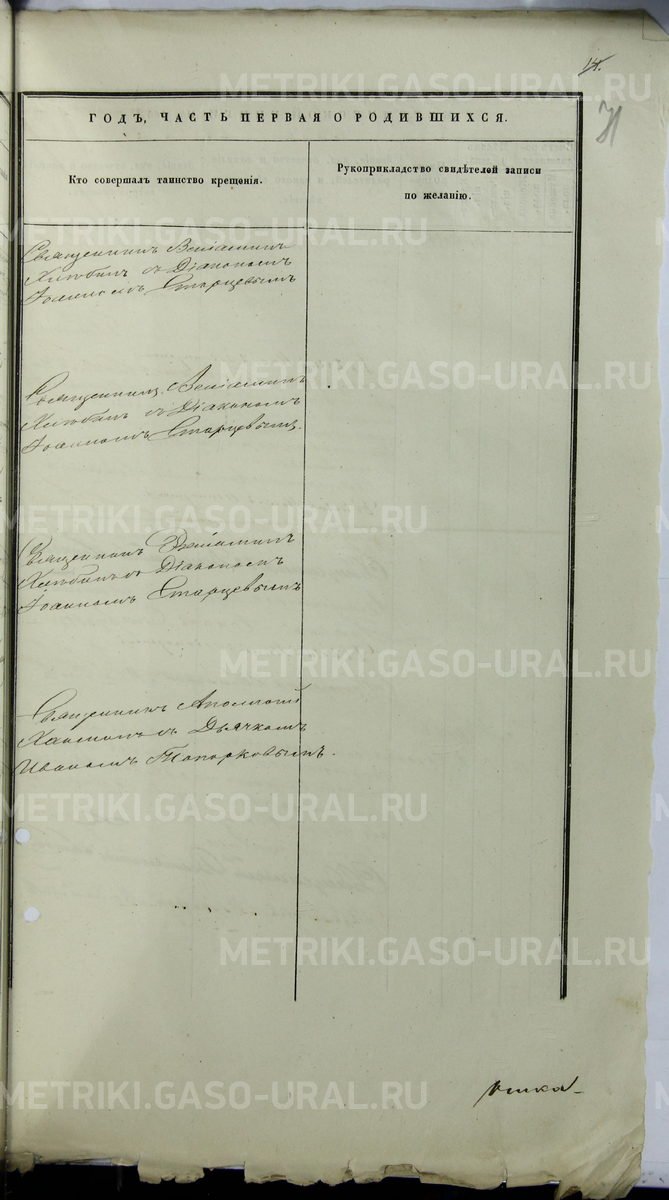 14.
31
ГОДЪ, ЧАСТЬ ПЕРВАЯ О РОДИВШИХСЯ.
Кто совершалъ таинство крещенія.
Рукоприкладство свидѣтелей записи
по желанію.
Священникъ Веніаминъ
Хлѣбинъ съ Діакономъ
Іоанномъ Старцевымъ
Священникъ Веніаминъ
Хлѣбинъ съ Діакономъ
Іоанномъ Старцевымъ.
Священникъ Веніаминъ
Хлѣбинъ съ Діакономъ
Іоанномъ Старцевымъ
Священникъ
съ Дьячкомъ
Иваномъ Топорковымъ.
METRIKI.GASO-URAL.RU
METRIKI.GASO-URAL.RU
METRIKI.GASO-URAL.RU
METRIKI.GASO-URAL.RU
METRIKI.GASO-URAL.RU
METRIKI.GASO-URAL.RU
METRIKI.GASO-URAL.RU
METRIKI.GASO-URAL.RU